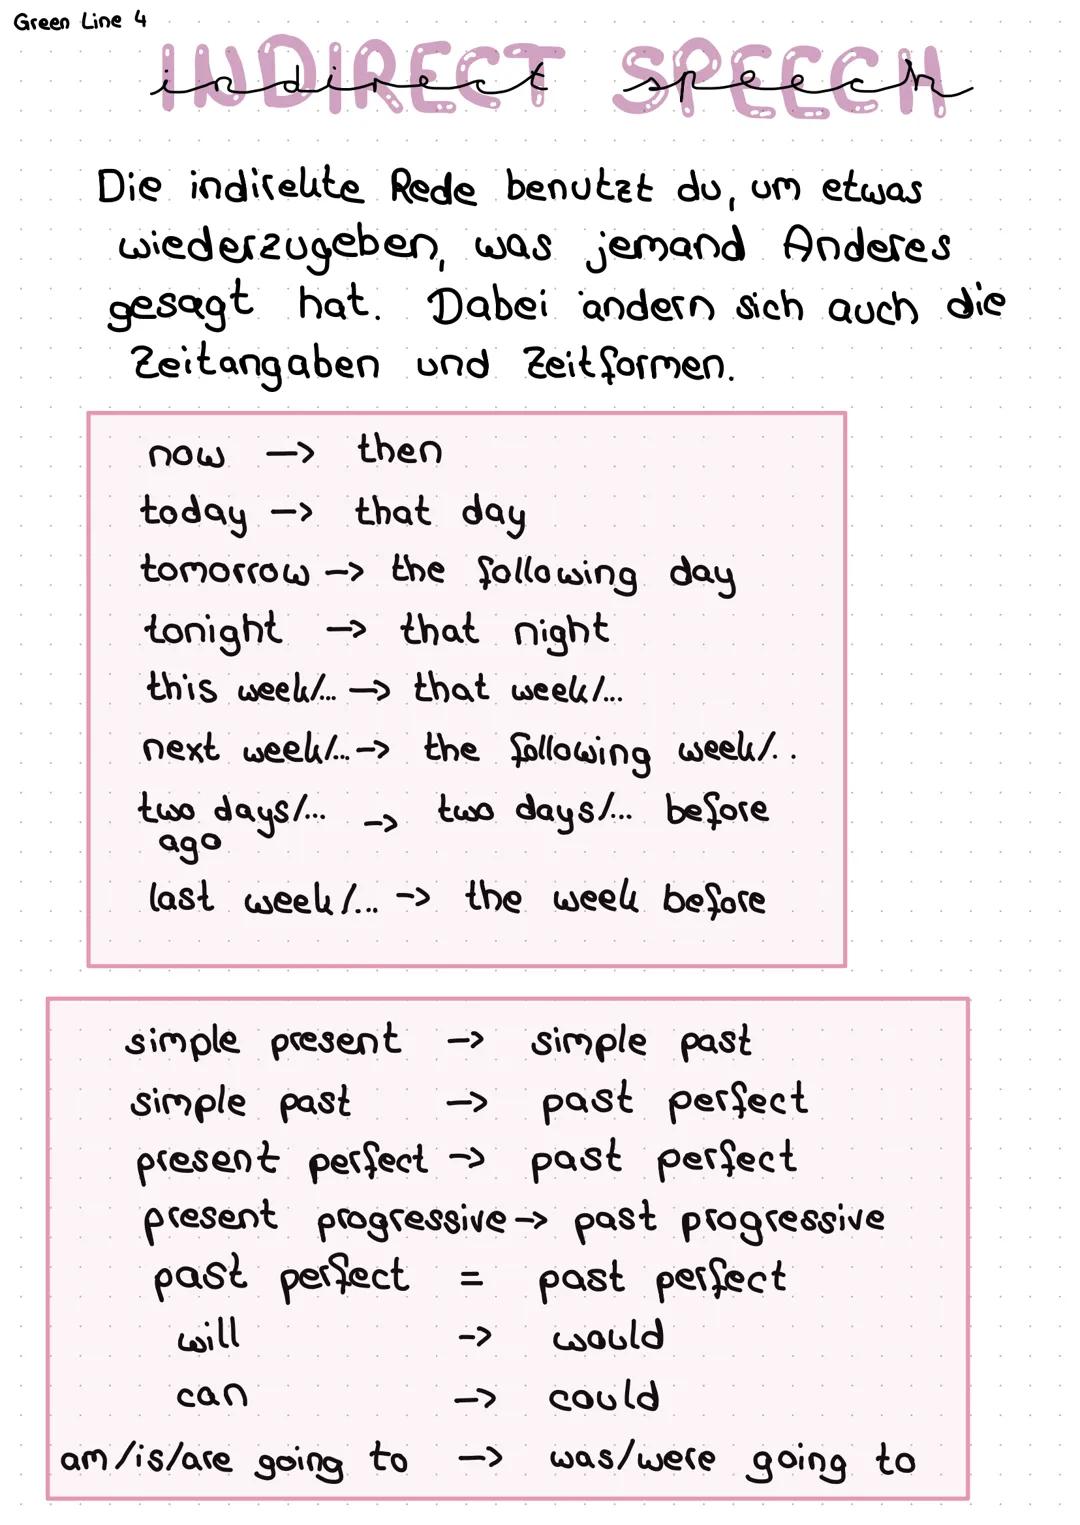 Green Line 4
INDIRECT SPEECH
indirect speech
Die indirekte Rede benutzt du, um etwas
wiederzugeben, was jemand Anderes
gesagt hat. Dabei ändern sich auch die
Zeitangaben und Zeitformen.
now -> then
today -> that day
tomorrow -> the following day
tonight -> that night
this week/... -> that week/...
next week/... -> the following week/..
two days/... -> two days/... before
ago
last week/... -> the week before
simple present -> simple past
simple past -> past perfect
present perfect -> past perfect
present progressive -> past progressive
past perfect = past perfect
will -> would
can -> could
am/is/are going to -> was/were going to